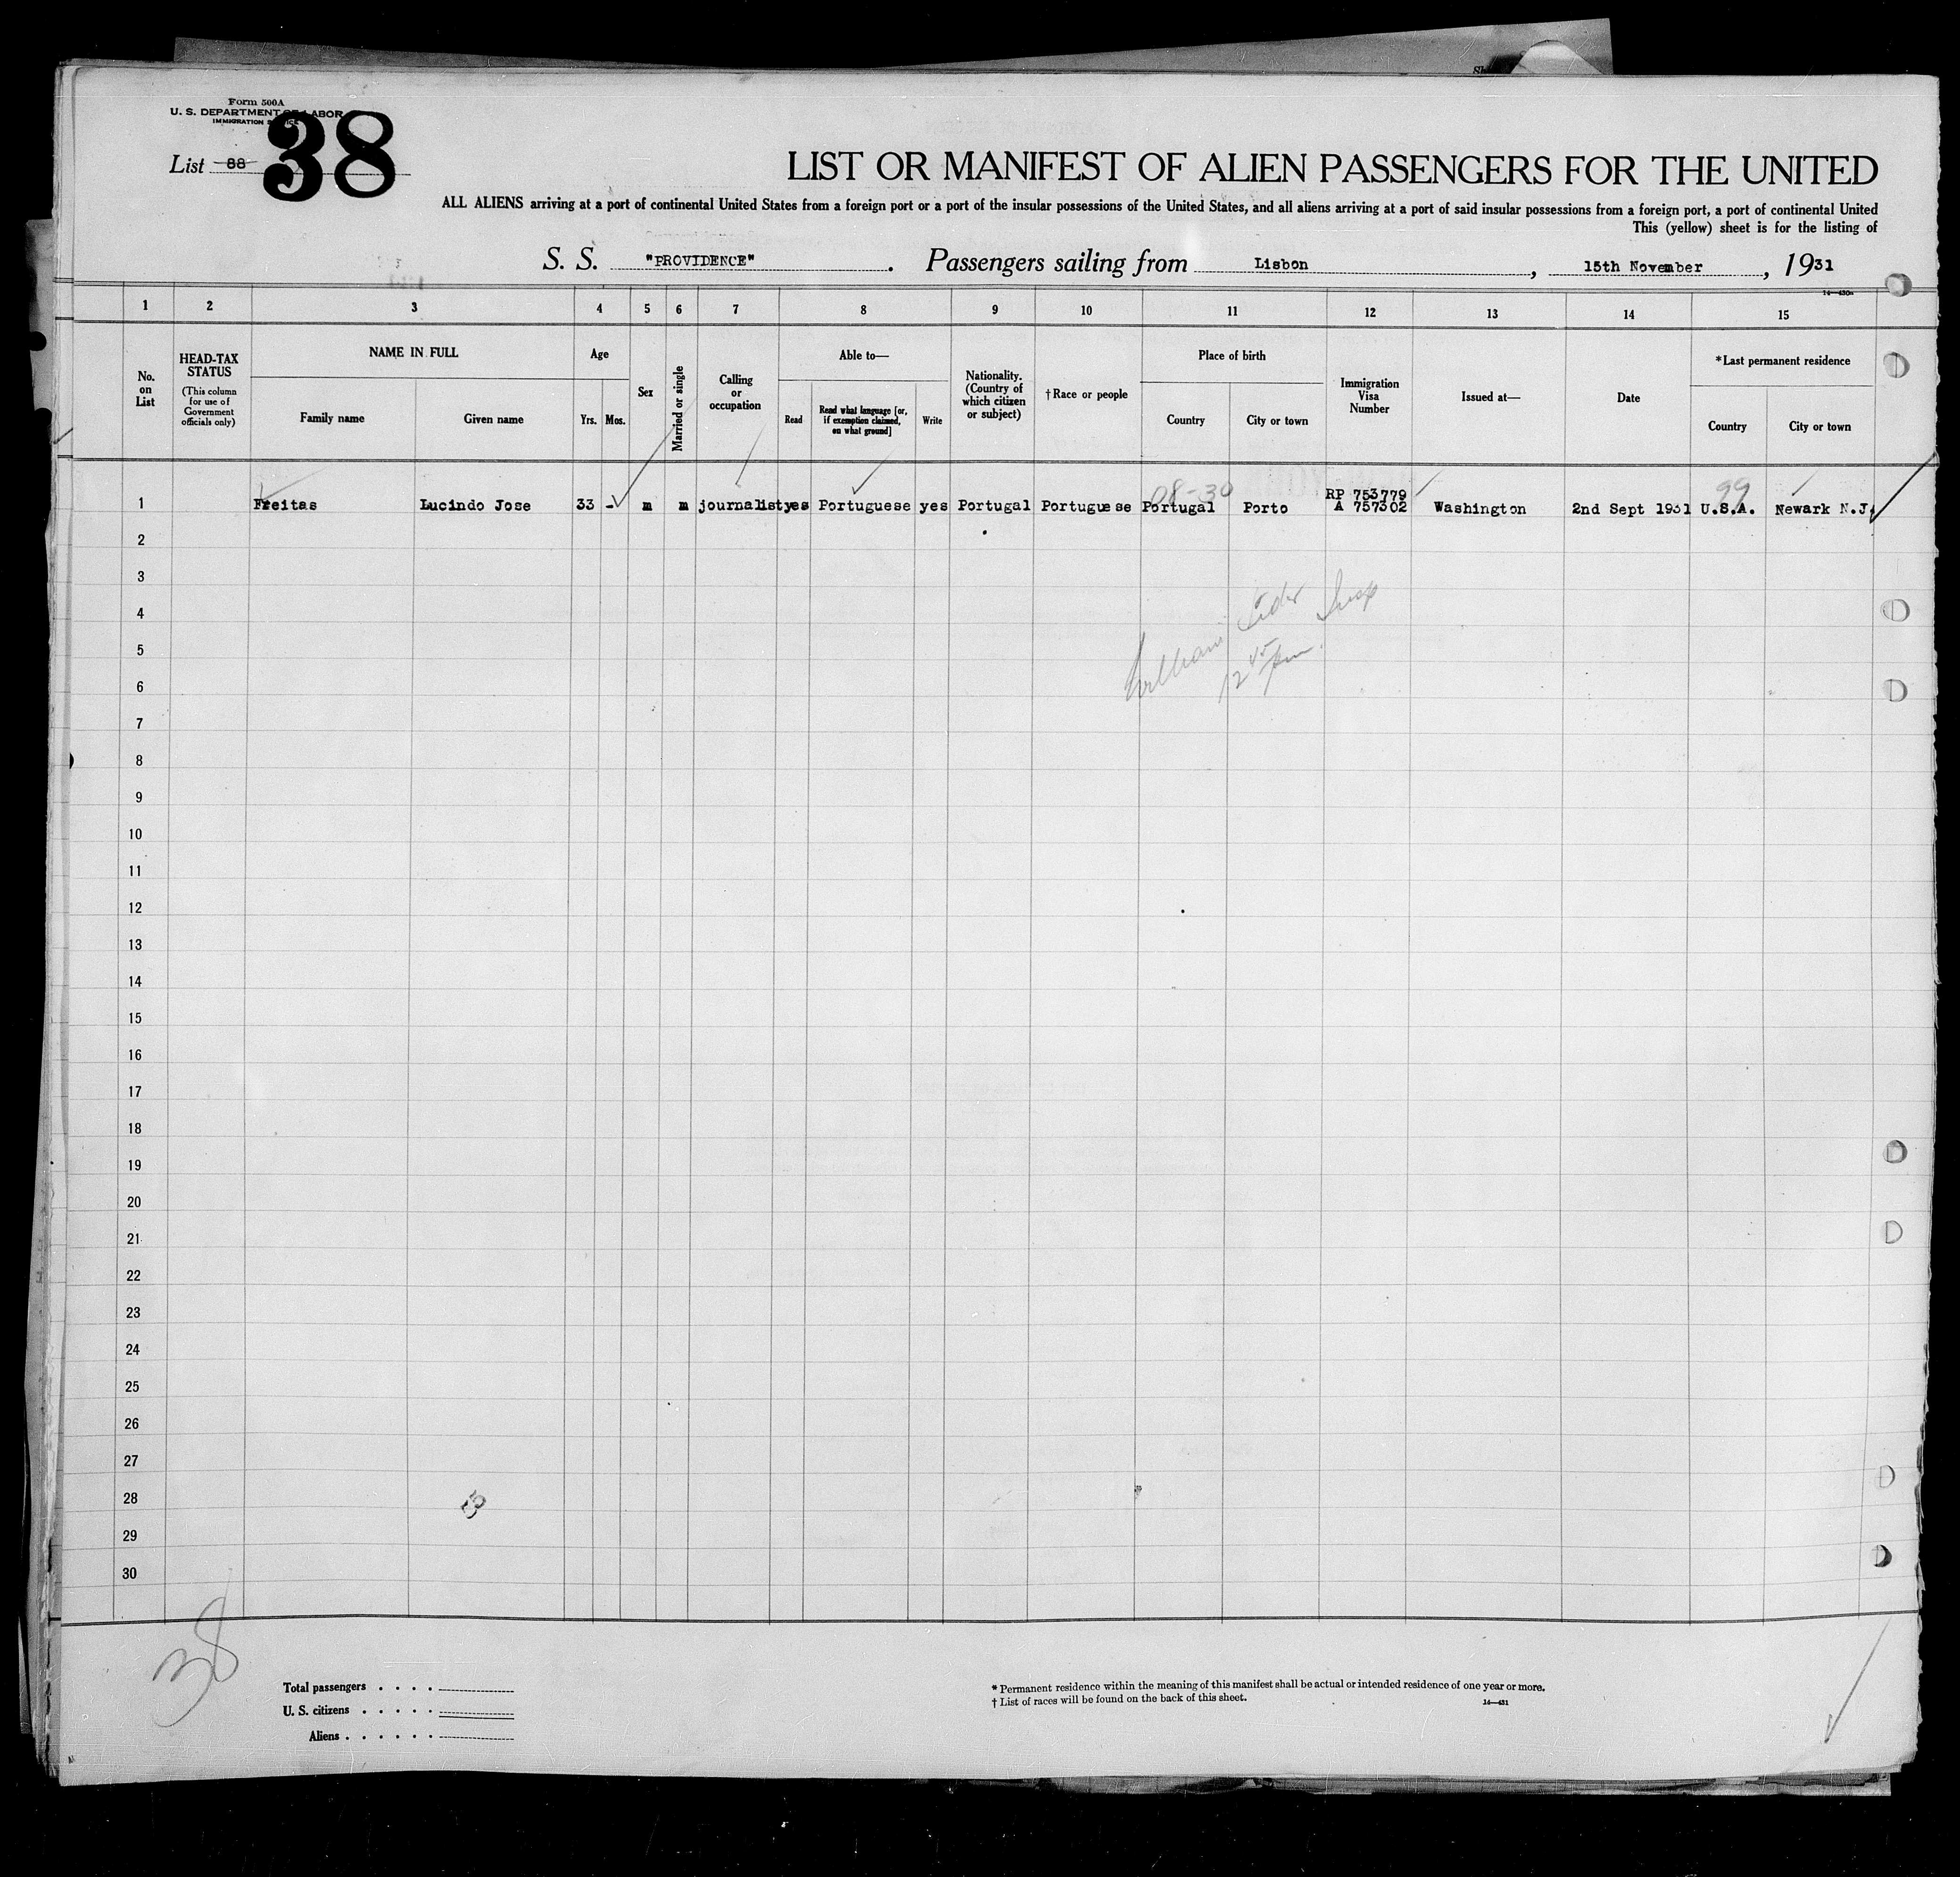 Form 500A
U. S. DEPARTMENT OF LABOR
IMMIGRATION SERVICE
List 88 38
LIST OR MANIFEST OF ALIEN PASSENGERS FOR THE UNITED
ALL ALIENS arriving at a port of continental United States from a foreign port or a port of the insular possessions of the United States, and all aliens arriving at a port of said insular possessions from a foreign port, a port of continental United
This (yellow) sheet is for the listing of
S. S. "PROVIDENCE". Passengers sailing from Lisbon, 15th November, 1931
14—430a
1 2 3 4 5 6 7 8 9 10 11 12 13 14 15
No. on List
HEAD-TAX STATUS
(This column for use of Government officials only)
NAME IN FULL
Family name Given name
Age
Yrs. Mos.
Sex
Married or single
Calling or occupation
Able to—
Read
Read what language [or, if exemption claimed, on what ground]
Write
Nationality. (Country of which citizen or subject)
†Race or people
Place of birth
Country City or town
Immigration Visa Number
Issued at—
Date
*Last permanent residence
Country City or town
08-30 99
1 Freitas Lucindo Jose 33 - m m journalist yes Portuguese yes Portugal Portuguese Portugal Porto RP 753779 A 757302 Washington 2nd Sept 1931 U.S.A. Newark N.J.
2
3
4
5
6
12 45 pm.
7
8
9
10
11
12
13
14
15
16
17
18
19
20
21
22
23
24
25
26
27
28
29
30
38
Total passengers . . . .
U. S. citizens . . . . .
Aliens . . . . . .
* Permanent residence within the meaning of this manifest shall be actual or intended residence of one year or more.
† List of races will be found on the back of this sheet.
14—431